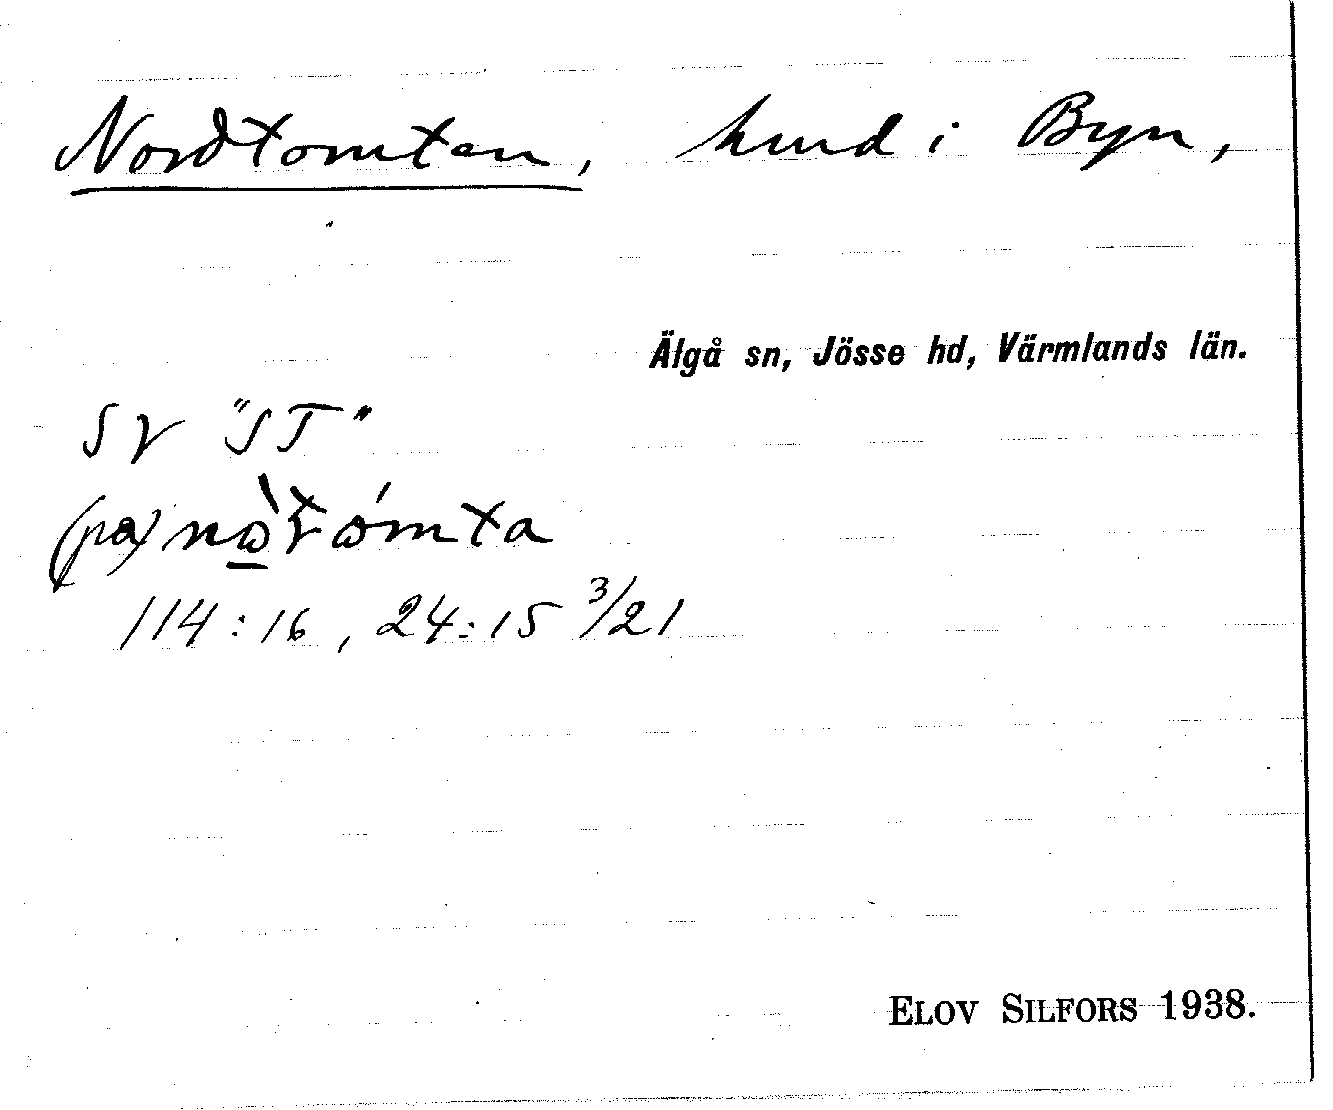 Nordtomten, hmd i Byn,
Älgå sn, Jösse hd, Värmlands län.
SV "ST"
(pa)
114:16, 24:15 3/21
ELOV SILFORS 1938.